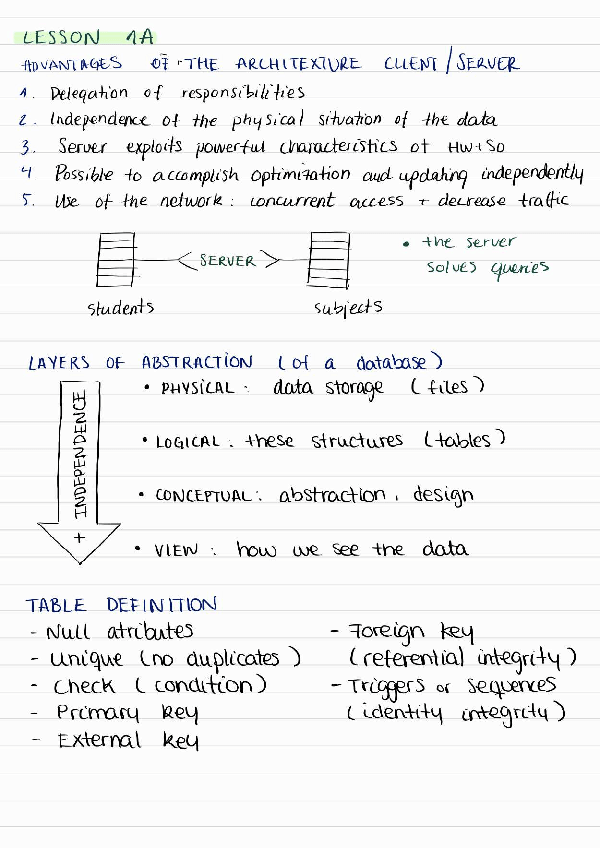 LESSON 1A
ADVANTAGES OF THE ARCHITEXTURE CLIENT/SERVER
1. Delegation of responsibilities
2. Independence of the physical situation of the data
3. Server exploits powerful characteristics of HW+SO
4 Possible to accomplish optimization and updating independently
5. Use of the network: concurrent access + decrease traffic
SERVER
• the server
solves queries
students
subjects
LAYERS OF ABSTRACTION (of a database)
• PHYSICAL: data storage (files)
• LOGICAL: these structures (tables)
• CONCEPTUAL: abstraction, design
• VIEW: how we see the data
+ INDEPENDENCE
TABLE DEFINITION
- Null atributes
- Unique (no duplicates)
- Check (condition)
- Primary key
- External key
- Foreign key
(referential integrity)
- Triggers or sequences
(identity integrity)